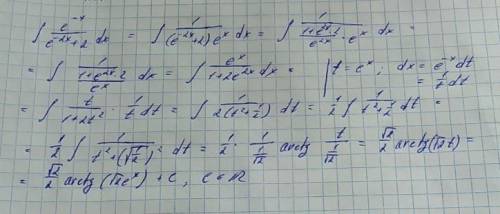 ∫ e^{-x}/(e^{-2x}+2) dx = ∫ 1/((e^{-2x}+2)e^x) dx = ∫ 1/((1+e^{2x}·2)/e^{2x} · e^x) dx =
= ∫ 1/((1+e^{2x}·2)/e^x) dx = ∫ e^x/(1+2e^{2x}) dx = | t = e^x ; dx = e^{-x} dt = 1/t dt
= ∫ t/(1+2t²) · 1/t dt = ∫ 1/(2(t²+1/2)) dt = 1/2 ∫ 1/(t²+1/2) dt =
= 1/2 ∫ 1/(t²+(√1/2)²) dt = 1/2 · 1/(1/√2) arctg t/(1/√2) = √2/2 arctg(√2t) =
= √2/2 arctg(√2e^x) + C, C∈ℝ